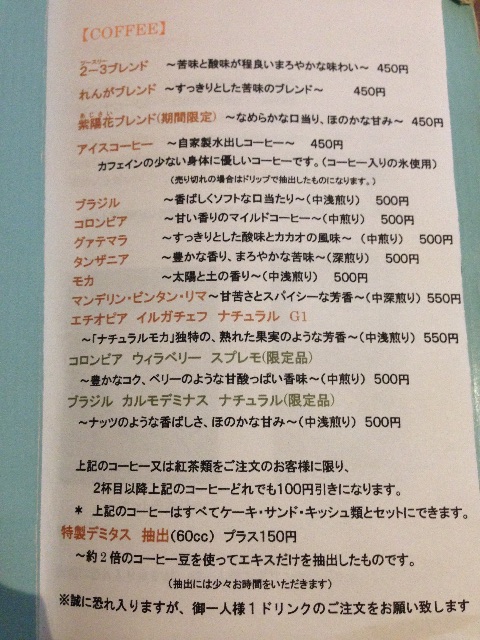 【COFFEE】
2－3ブレンド ～苦味と酸味が程良いまろやかな味わい～ 450円
れんがブレンド ～すっきりとした苦味のブレンド～ 450円
あじさい
紫陽花ブレンド(期間限定) ～なめらかな口当り、ほのかな甘み～ 450円
アイスコーヒー ～自家製水出しコーヒー～ 450円
カフェインの少ない身体に優しいコーヒーです。(コーヒー入りの氷使用)
(売り切れの場合はドリップで抽出したものになります。)
ブラジル ～香ばしくソフトな口当たり～(中浅煎り) 500円
コロンビア ～甘い香りのマイルドコーヒー～(中煎り) 500円
グァテマラ ～すっきりとした酸味とカカオの風味～(中煎り) 500円
タンザニア ～豊かな香り、まろやかな苦味～(深煎り) 500円
モカ ～太陽と土の香り～(中浅煎り) 500円
マンデリン・ビンタン・リマ ～甘苦さとスパイシーな芳香～(中深煎り) 550円
エチオピア イルガチェフ ナチュラル G1
～「ナチュラルモカ」独特の、熟れた果実のような芳香～(中浅煎り) 550円
コロンビア ウィラベリー スプレモ(限定品)
～豊かなコク、ベリーのような甘酸っぱい香味～(中煎り) 500円
ブラジル カルモデミナス ナチュラル(限定品)
～ナッツのような香ばしさ、ほのかな甘み～(中浅煎り) 500円
上記のコーヒー又は紅茶類をご注文のお客様に限り、
2杯目以降上記のコーヒーどれでも100円引きになります。
* 上記のコーヒーはすべてケーキ・サンド・キッシュ類とセットにできます。
特製デミタス 抽出(60cc) プラス150円
～約2倍のコーヒー豆を使ってエキスだけを抽出したものです。
(抽出には少々お時間をいただきます)
※誠に恐れ入りますが、御一人様1ドリンクのご注文をお願い致します